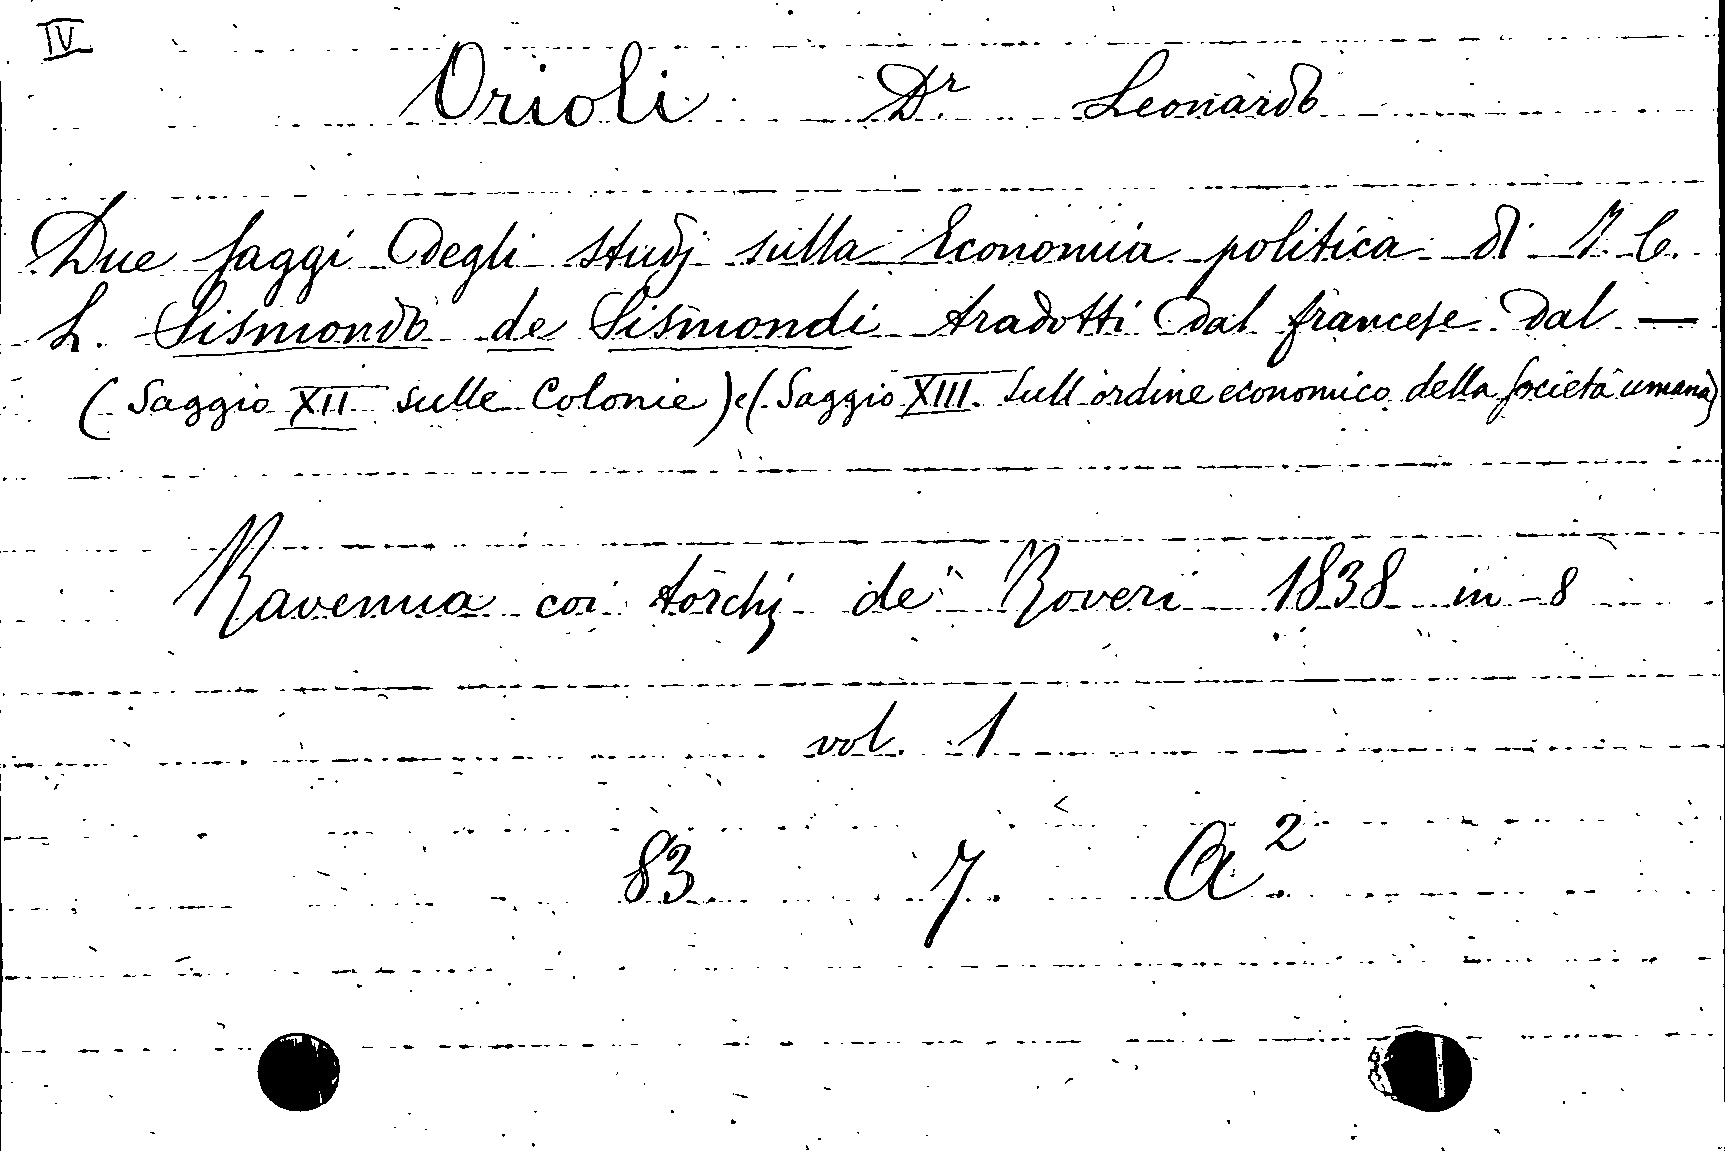 IV
Orioli Dr Leonardo
Due saggi degli studj sulla Economia politica di J. C.
L. Sismondo de Sismondi tradotti dal francese dal —
(Saggio XII sulle Colonie) e (Saggio XIII. Sull'ordine economico della società umana)
Ravenna coi torchj de' Roveri 1838 in-8
vol. 1
83 7. A²